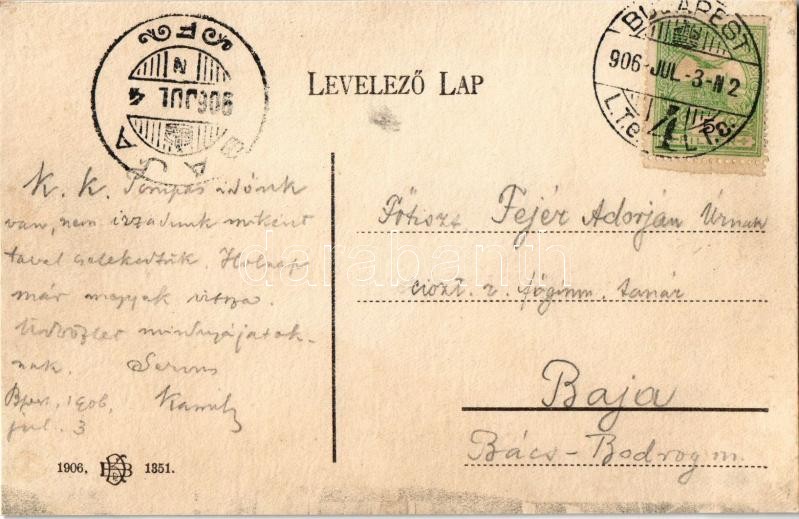 LEVELEZŐ LAP
BUDAPEST
906 JUL -3-N 2
BAJA
906 JUL 4
N
K. K. Pompás időnk
van, nem izzadunk miként
taval cselekedtük. Holnap
már megyek vissza.
Üdvözlet mindnyájatok-
nak. Servus
Bpest, 1906. Kamil
júl. 3
Főtiszt. Fejér Adorján Úrnak
ciszt. r. főgimn. tanár
Baja
Bács-Bodrog m.
1906, 1851.
darabanth